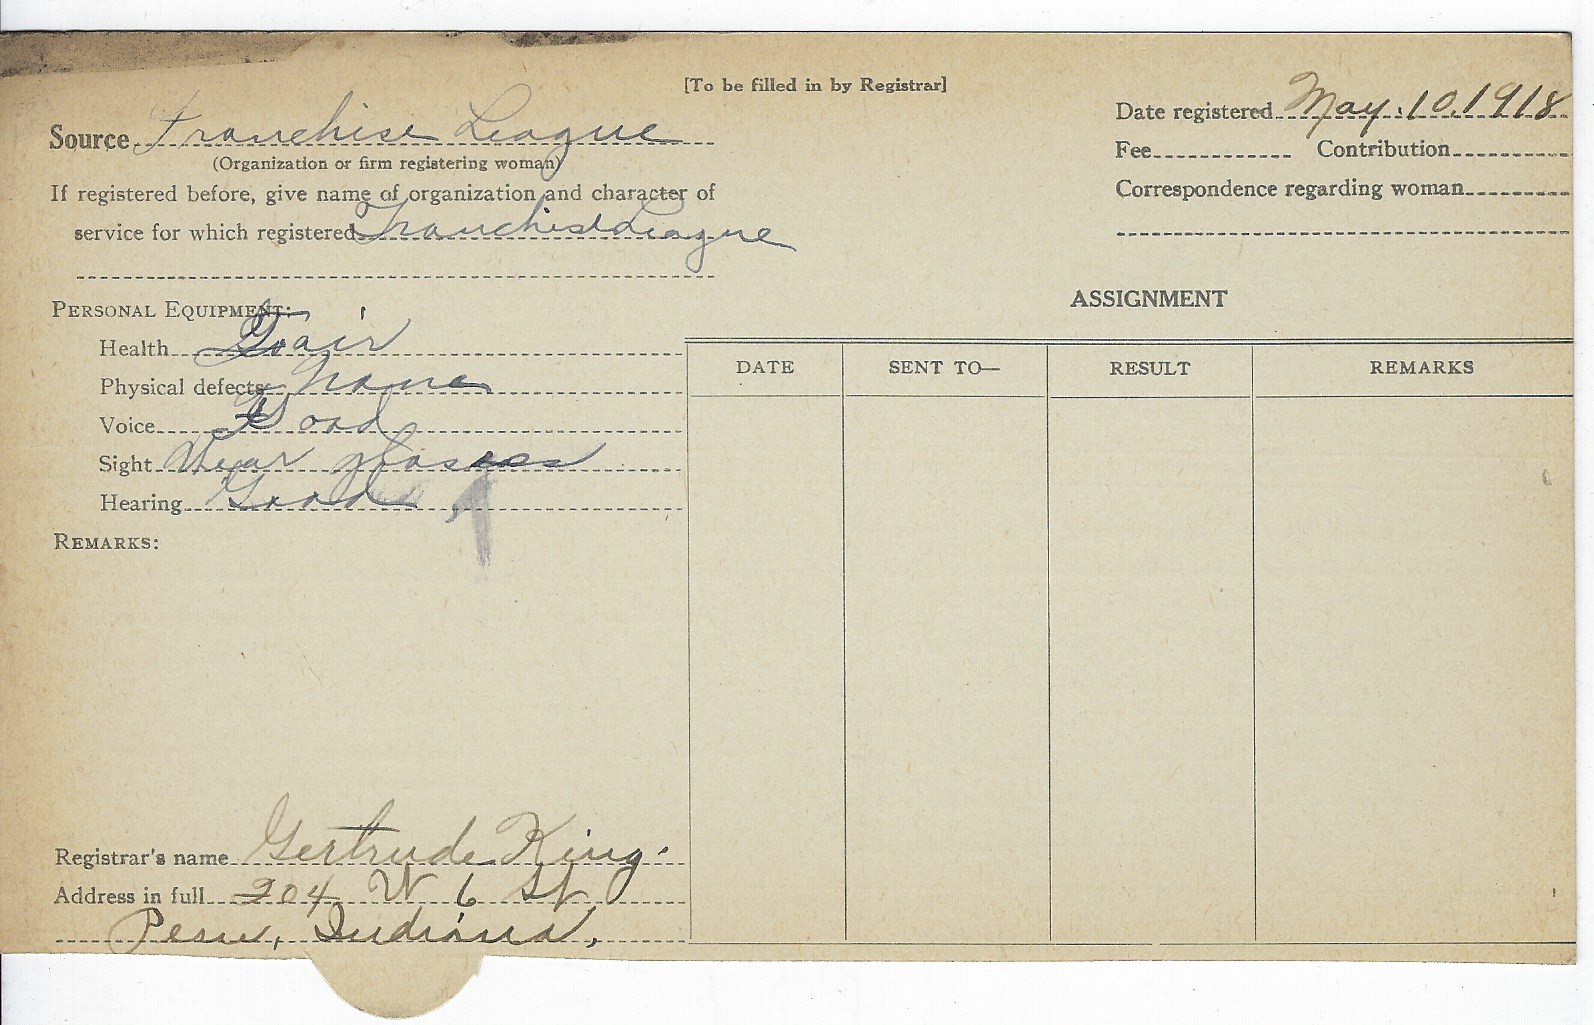 [To be filled in by Registrar]
Source Franchise League
(Organization or firm registering woman)
If registered before, give name of organization and character of
service for which registered Franchise League
Date registered May. 10, 1918
Fee Contribution
Correspondence regarding woman
PERSONAL EQUIPMENT:
Health Fair
Physical defects None
Voice Good
Sight Wear glasses
Hearing Good
REMARKS:
ASSIGNMENT
DATE SENT TO— RESULT REMARKS
Registrar's name Gertrude King.
Address in full 204 W 6 St
Peru, Indiana,